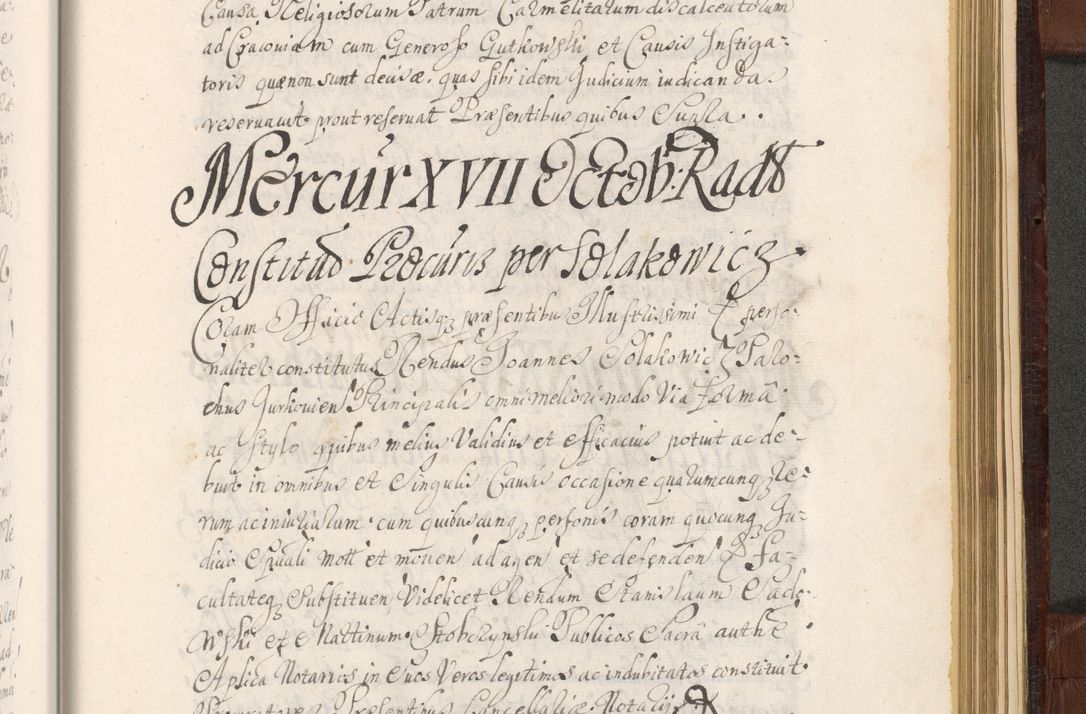 Causa Religiosorum Patrum Carmelitarum discalceatorum
ad Cracoviam cum Generoso Gutkowski et Causis Instiga-
toris quænon sunt decisæ, quas sibi idem Judicium iudicanda
reservavit prout reservat Præsentibus quibus Supra.
Mercur XVII Octobr: Radt
Constitud Procuris per Solakowicz
Coram Officio Actisq præsentibus Illustrissimi perso-
naliter constitutus Rendus Joannes Solakowicz Paro-
chus Jurkovien Principalis omni meliori modo Via formâ
ac Stylo quibus melius Validius et efficacius potuit ac de-
buit in omnibus et Singulis Causis occasione quarumcunq Re-
rum ac iniuriarum cum quibuscunq personis coram quocunq Ju-
dicio Spuali mott et moven ad agen et se defenden Fa-
cultateq Substituen Videlicet Rendum Stanislaum Sado-
wski et Martinum Stobczynski Publicos Sacrâ authe
Aplica Notarios in Suos Veros legitimos ac indubitatos constituit
Procuratores Præsentibus Cancellariæ Notarijs